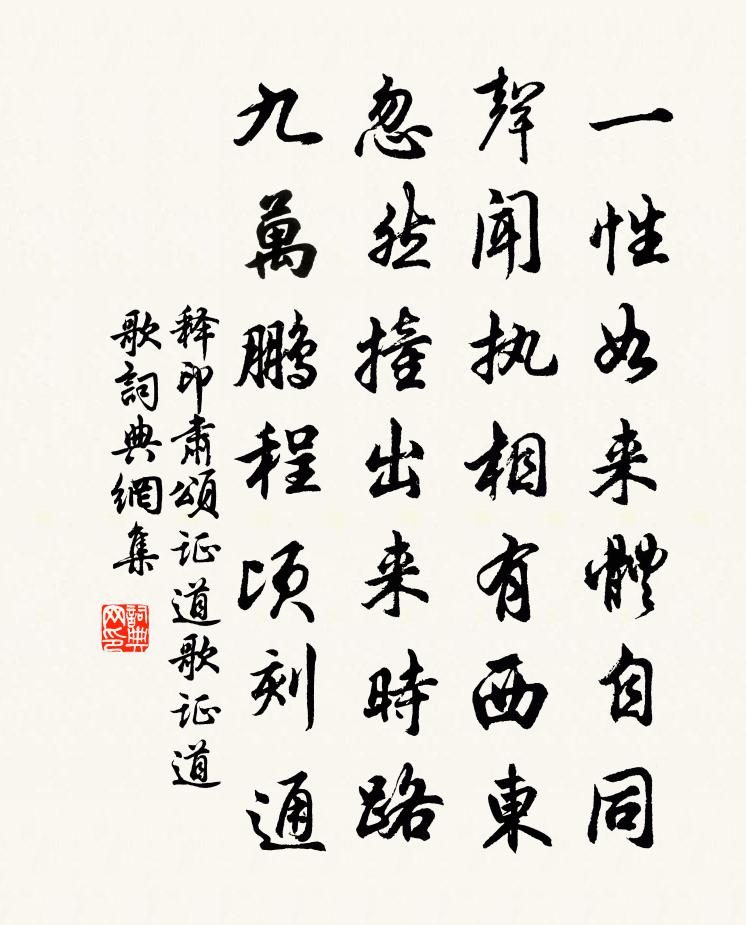 一性如来體自同
聲聞执相有西東
忽然撞出来時路
九萬鵬程頃刻通
释印肃頌证道歌证道
歌詞典網集
詞典网印